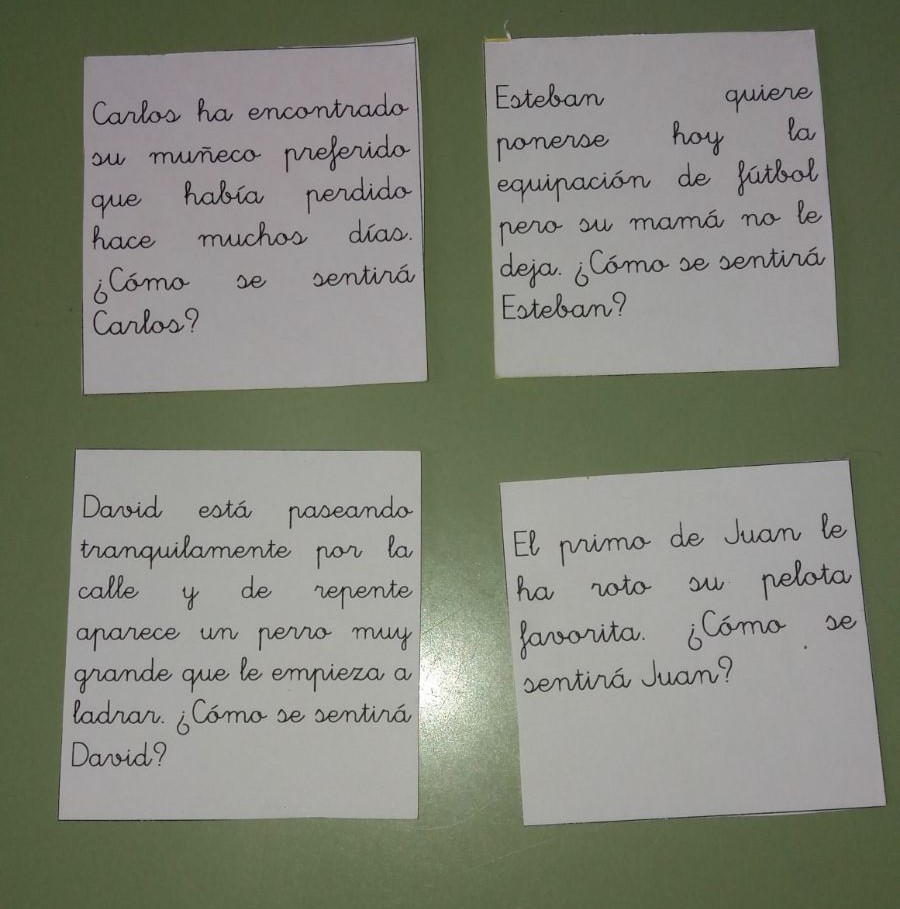 Carlos ha encontrado
su muñeco preferido
que había perdido
hace muchos días.
¿Cómo se sentirá
Carlos?
Esteban quiere
ponerse hoy la
equipación de fútbol
pero su mamá no le
deja. ¿Cómo se sentirá
Esteban?
David está paseando
tranquilamente por la
calle y de repente
aparece un perro muy
grande que le empieza a
ladrar. ¿Cómo se sentirá
David?
El primo de Juan le
ha roto su pelota
favorita. ¿Cómo se
sentirá Juan?